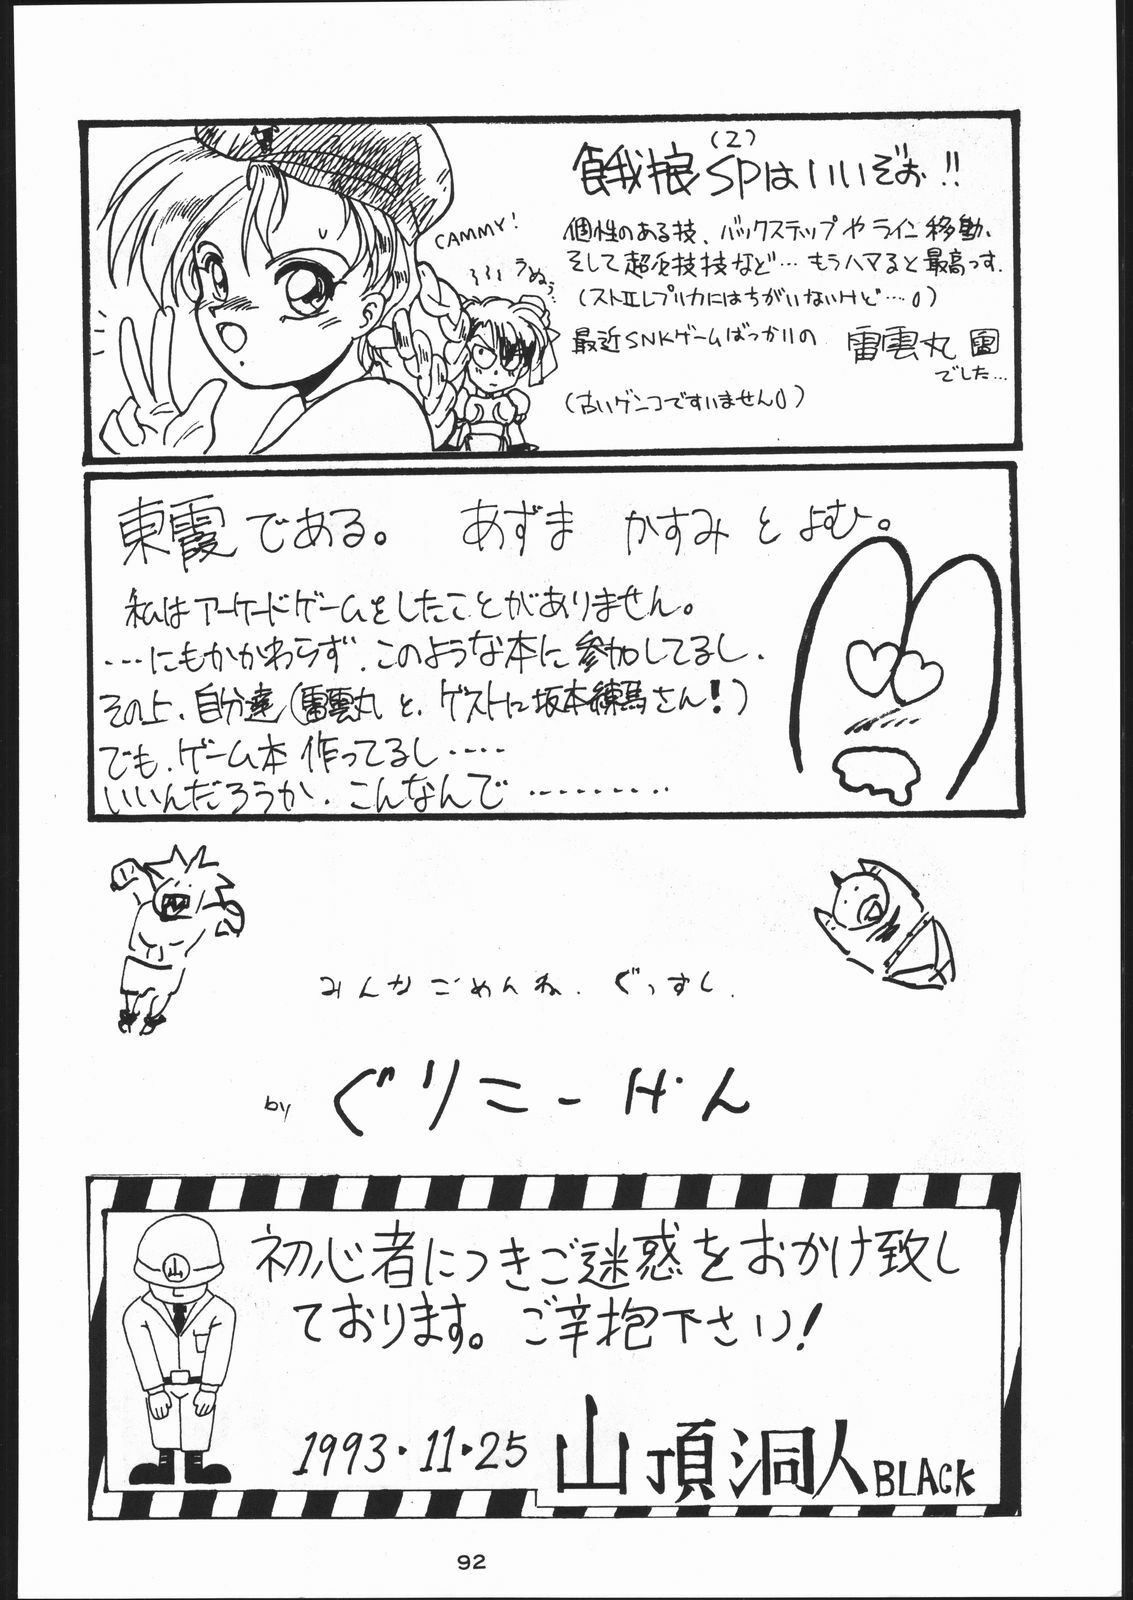 餓狼SP(2)はいいぞぉ!!
CAMMY!
うぬぅ…
個性のある技、バックステップやライン移動、
そして超必殺技など…もうハマると最高っす。
(ストIIレプリカにはちがいないけど…。)
最近SNKゲームばっかりの 雷雲丸
でした…
(古いゲンコですいません。)
東霞である。 あずま かすみ とよむ。
私はアーケードゲームをしたことがありません。
…にもかかわらず、このような本に参加してるし、
その上、自分達(雷雲丸と、ゲストに坂本練馬さん!)
でも、ゲーム本作ってるし……
いいんだろうか、こんなんで………
みんなごめんね、ぐっすし、
by ぐりこーけん
初心者につきご迷惑をおかけ致し
ております。ご辛抱下さい!
山
1993・11・25 山頂洞人 BLACK
92